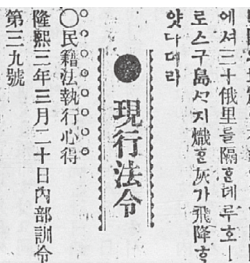 에셔三十俄里를隔ᄒᆞᆫ데루호ㅣ
로스구島ᄭᆞ지熾ᄒᆞᆫ灰가飛降ᄒᆞ
얏다더라
●現行法令
○民籍法執行心得
隆熙三年三月二十日內部訓令
第三九號